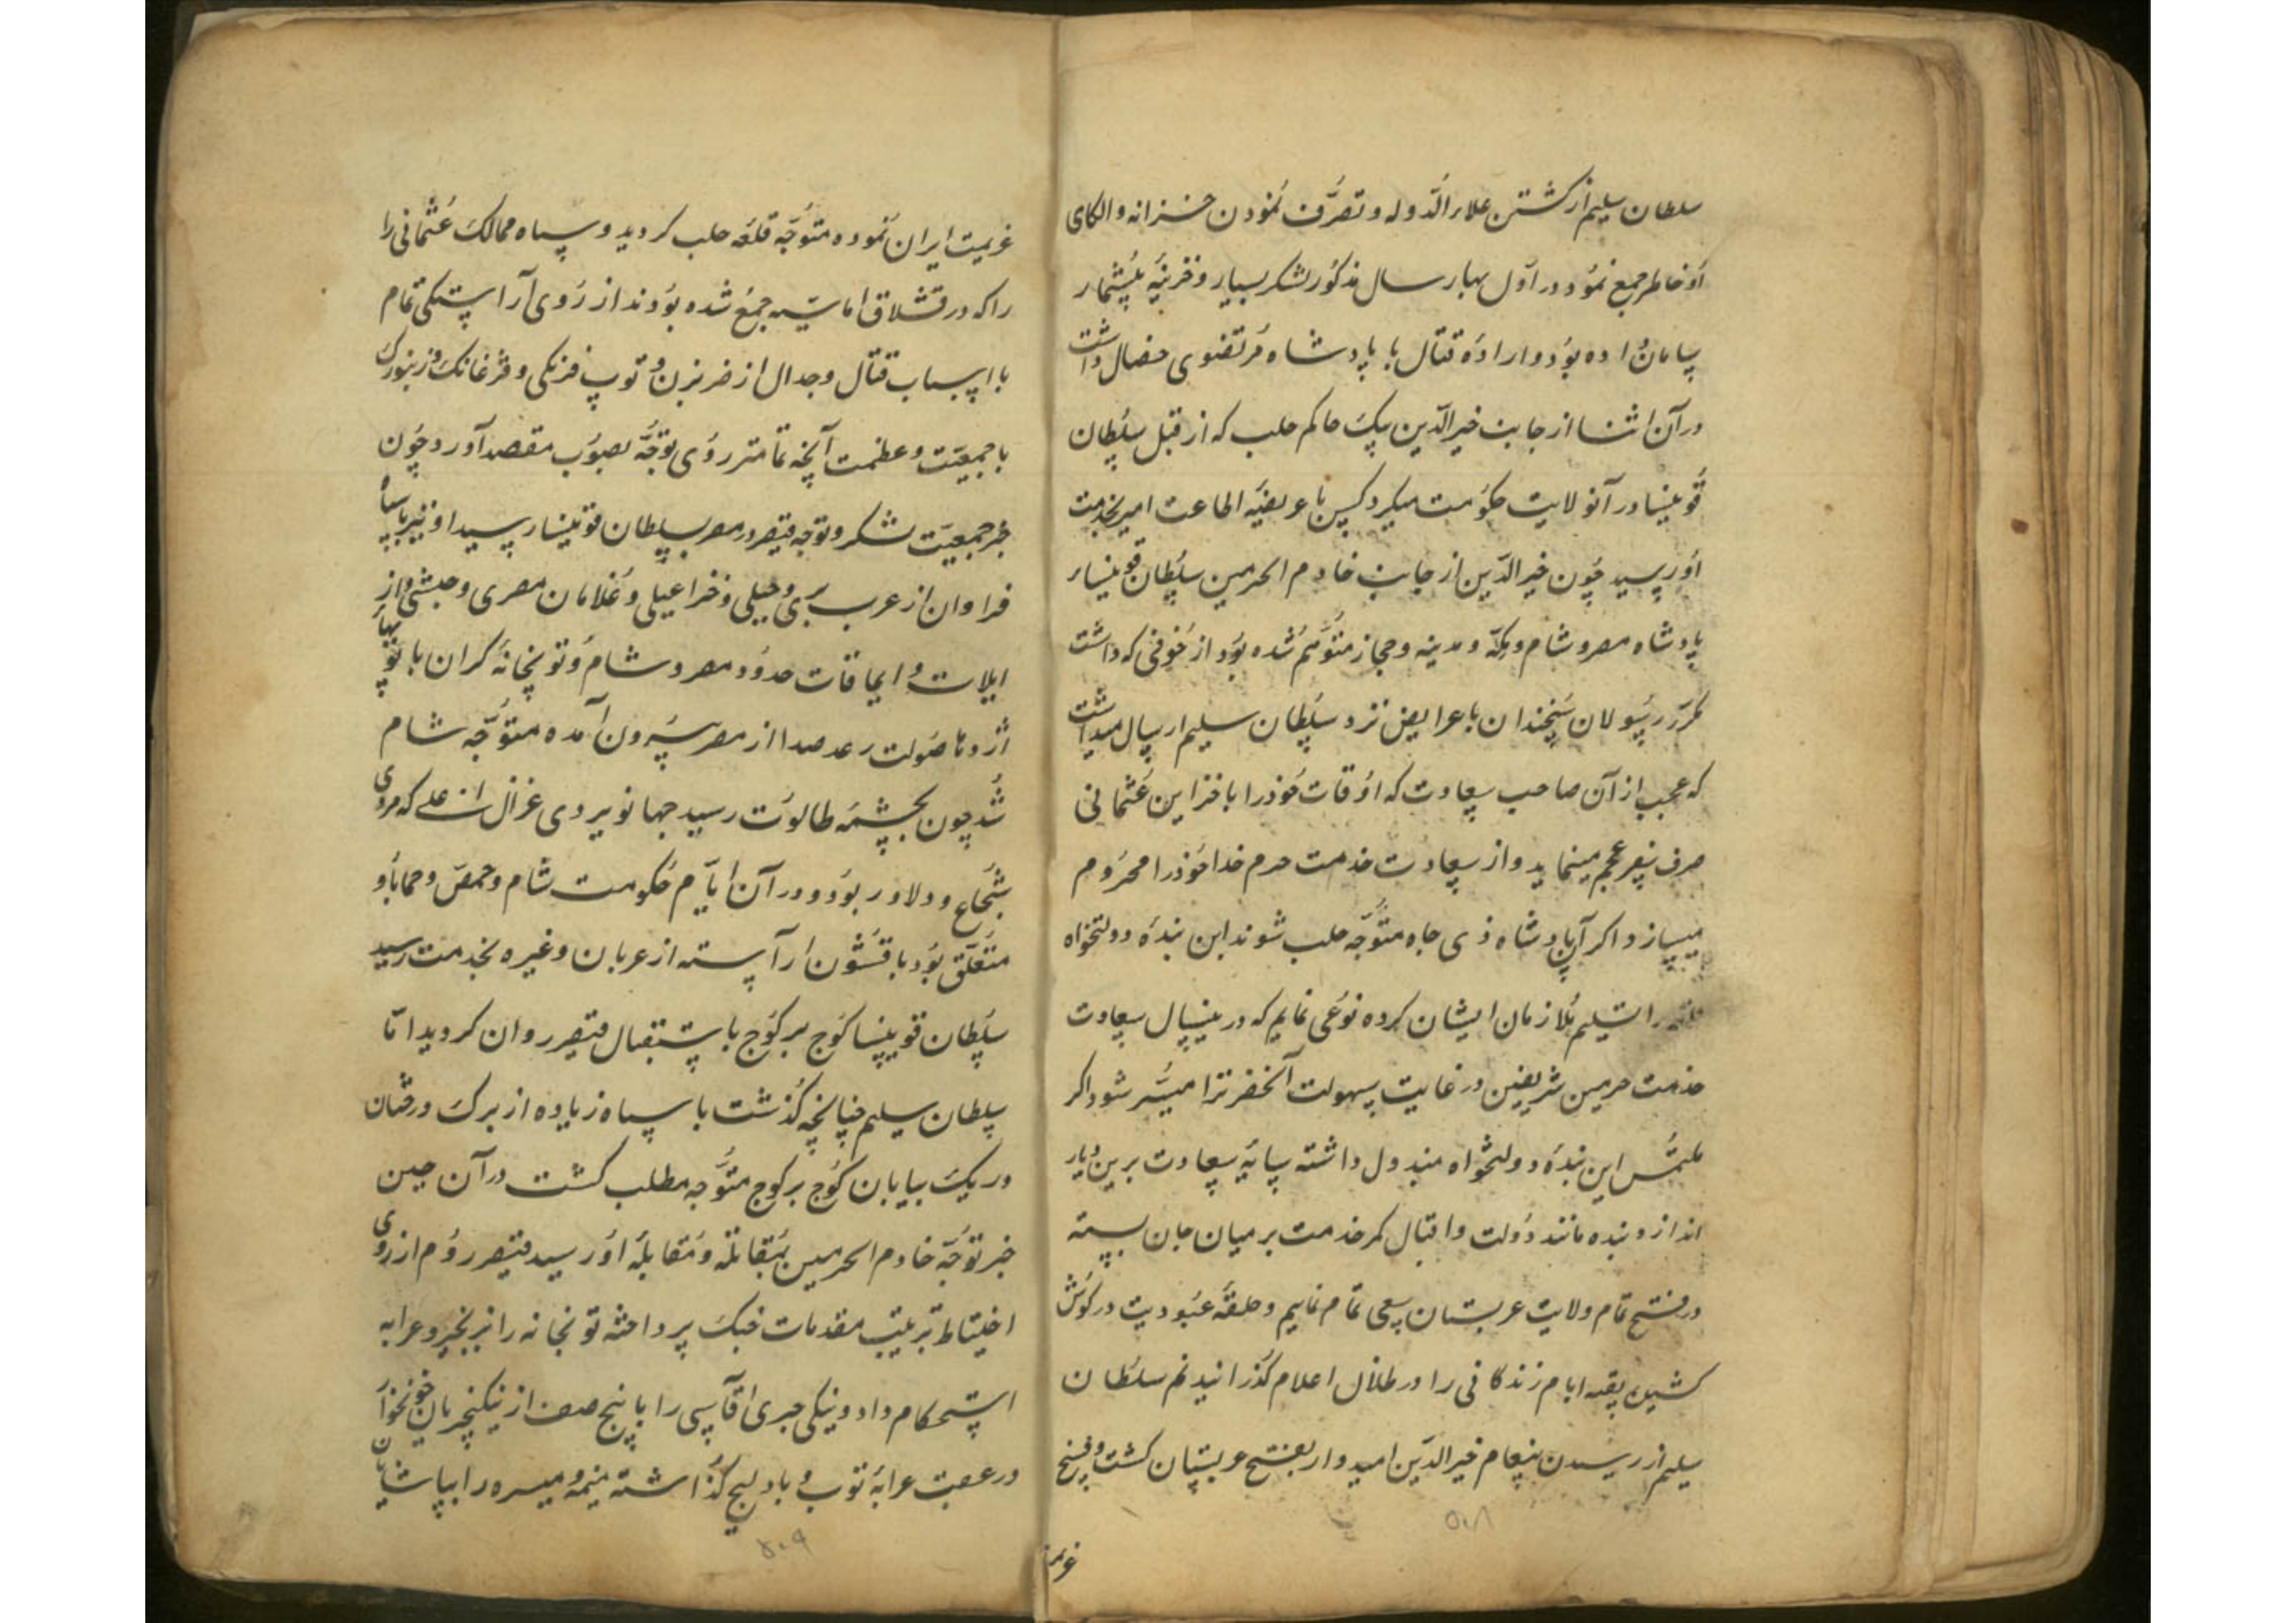 سلطان سلیم از کشتن علاء الدوله و تصرف نمودن خزانه والکای
او خاطر جمع نمود و در اول بهار سال مذکور لشکر بسیار و خزینه بیشمار
سامان داده بود و اراده قتال با پادشاه مرتضوی خصال داشت
در آن اثنا از جانب خیرالدین بیک حاکم حلب که از قبل سلطان
قوینسا در آنولایت حکومت میکرد کس با عریضه اطاعت امیر بخدمت
او رسید چون خیرالدین از جانب خادم الحرمین سلطان قوینسا
پادشاه مصر و شام و مکه و مدینه و حجاز متوهم شده بود از خوفی که داشت
مکرر رسولان سخندان با عرایض نزد سلطان سلیم ارسال میداشت
که عجب از آن صاحب سعادت که اوقات خود را با خزاین عثمانی
صرف سفر عجم مینماید و از سعادت خدمت حرم خدا خود را محروم
میسازد اگر آن پادشاه ذی جاه متوجه حلب شوند این بنده دولتخواه
را تسلیم ملازمان ایشان کرده نوعی نمایم که درینسال سعادت
خدمت حرمین شریفین در غایت سهولت آنحضرترا میسر شود اگر
ملتمس این بنده دولتخواه مبذول داشته سایه سعادت برین دیار
اندازد بنده مانند دولت و اقبال کمر خدمت بر میان جان بسته
در فتح تمام ولایت عربستان سعی تمام نمایم و حلقه عبودیت در گوش
کشیده بقیه ایام زندگانی را در ظلال اعلام گذرانیدنم سلطان
سلیم از رسیدن پیغام خیرالدین امیدوار بفتح عربستان گشت و فسخ
۵۰۸
عزیمت ایران نموده متوجه قلعه حلب گردید و سپاه ممالک عثمانی را
را که در قشلاق اماسیه جمع شده بودند از روی آراستگی تمام
با اسباب قتال و جدال از ضربزن و توپ فرنگی و قزغانک و زنبورک
با جمعیت و عظمت آنچه تمامتر روی توجه بصوب مقصد آورد چون
خبر جمعیت لشکر و توجه قیصر در مصر بسلطان قوینسا رسید او نیز با سپاه
فراوان از عرب سری و جبلی و خزاعیلی و غلامان مصری و حبشی و از
ایلات و ایماقات حدود مصر و شام و توپخانه گران با توپهای
اژدها صولت رعد صدا از مصر بیرون آمده متوجه شام
شد چون بچشمه طالوت رسید جهانو بیردی غزال نسب علی که مردی
شجاع و دلاور بود و در آن ایام حکومت شام و حمص و حما باو
متعلق بود با قشون آراسته از عربان و غیره بخدمت رسید
سلطان قوینسا کوچ بر کوچ باستقبال قیصر روان گردید اما
سلطان سلیم چنانچه گذشت با سپاه زیاده از برک درختان
و ریک بیابان کوچ بر کوچ متوجه مطلب گشت در آن حین
خبر توجه خادم الحرمین بمقاتله و مقابله او رسید قیصر روم از روی
احتیاط ترتیب مقدمات جنگ پرداخته توپخانه را بزنجیر و عرابه
استحکام داد و ینکی چری اقاسی را با پنج صف از ینکیچریان خونخوار
در عقب عرابه توپ و بادلیج گذاشته میمنه و میسره را بپاشایان
۵۰۹